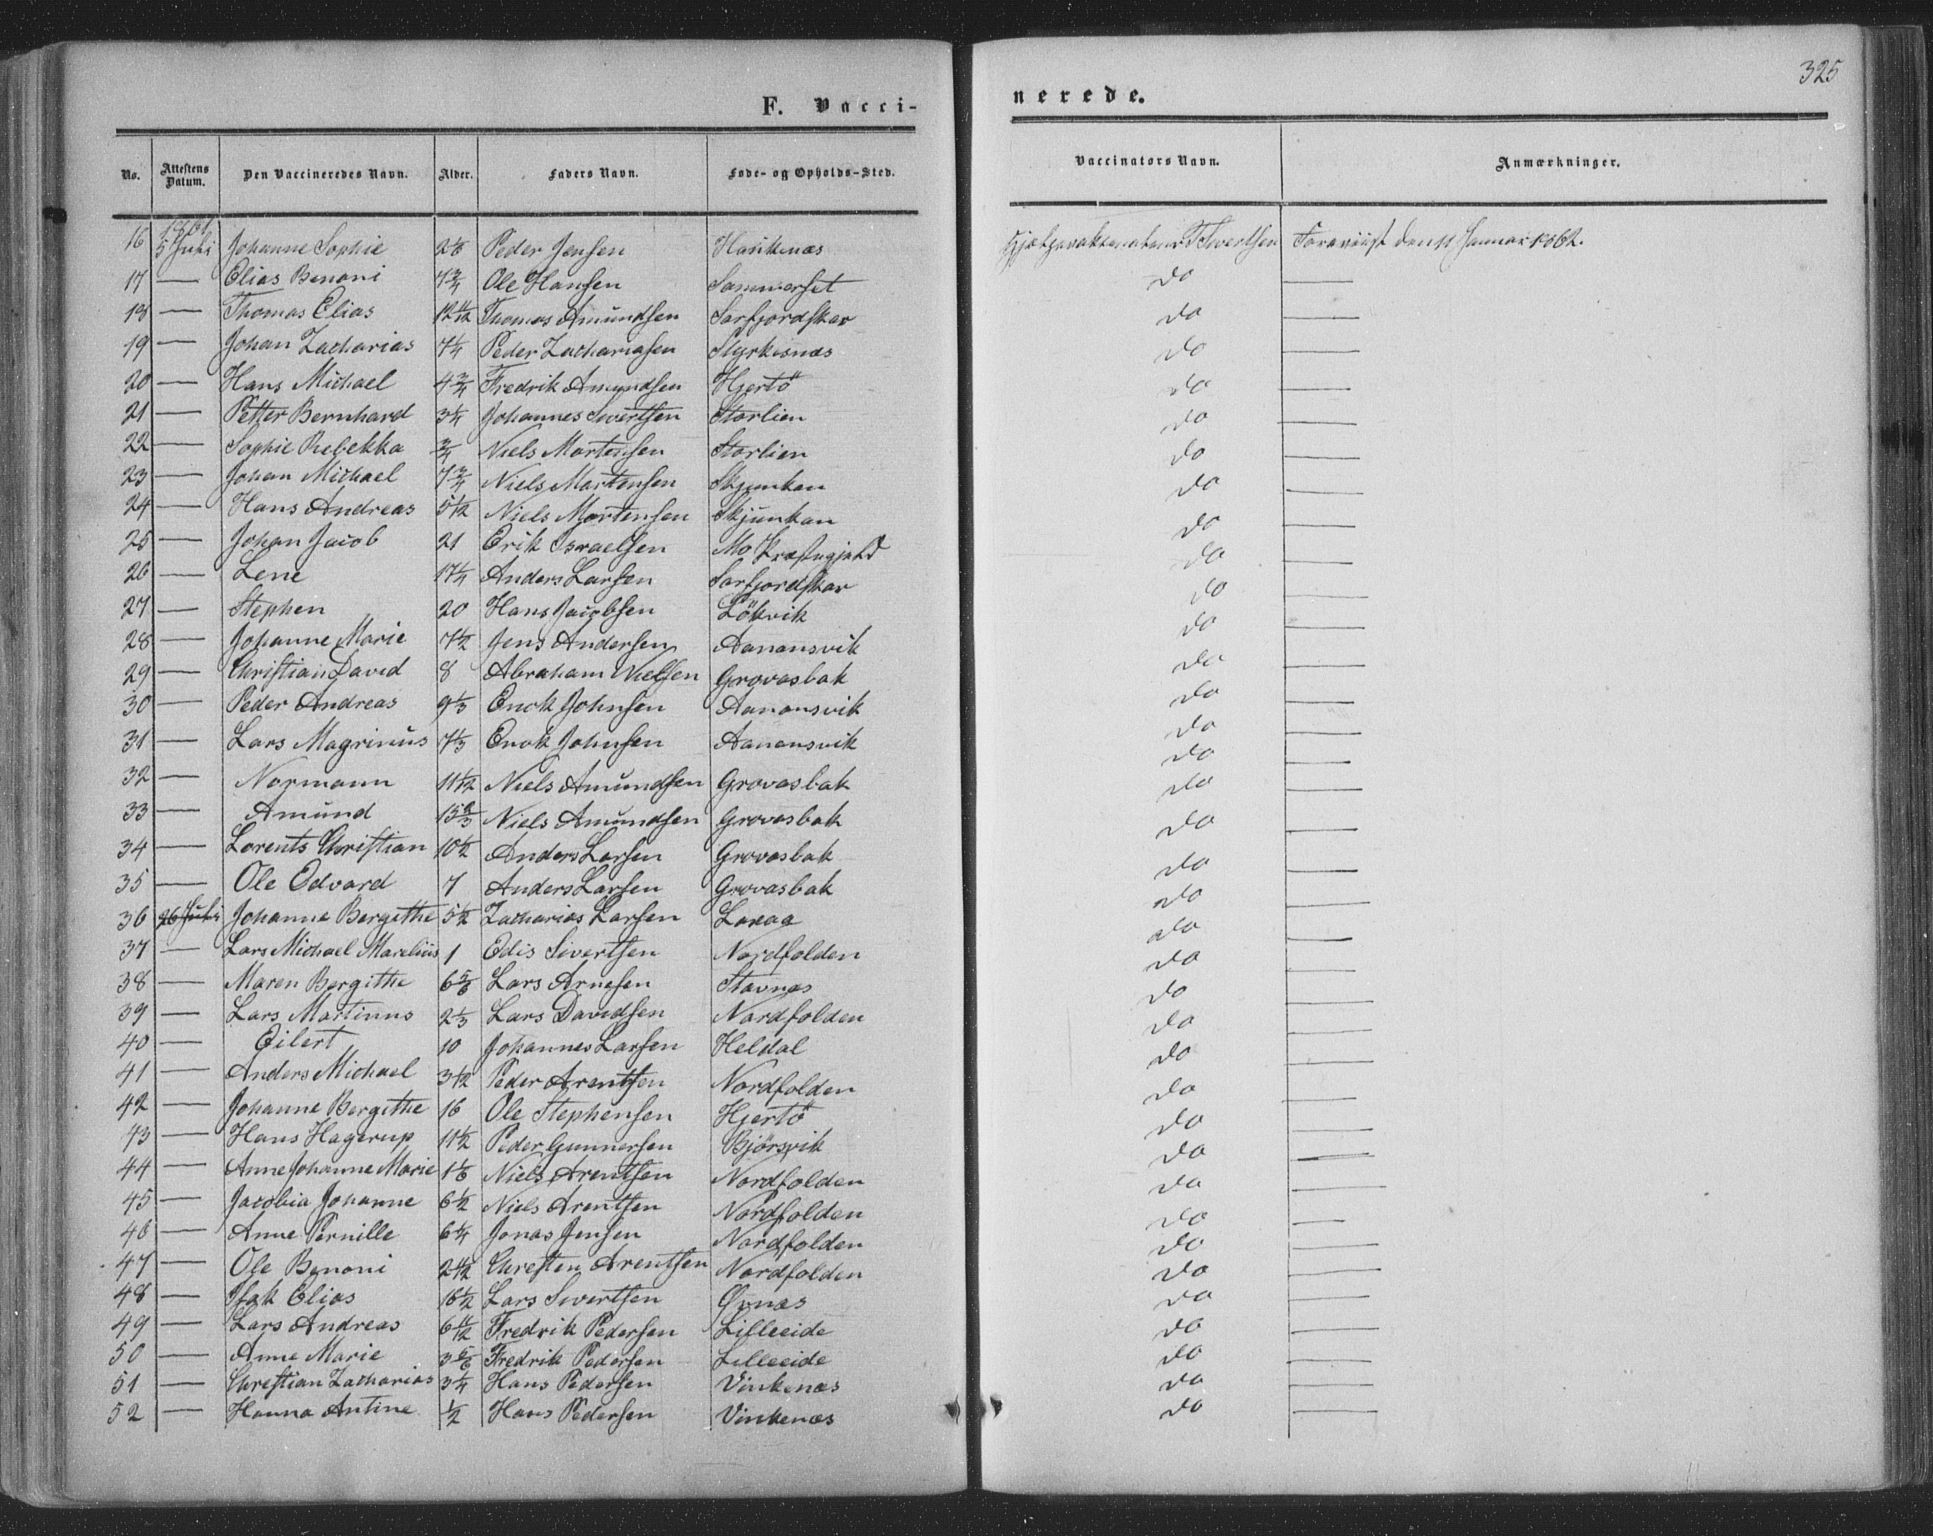 325
F. Vacci-
nerede.
No. Attestens Datum. Den Vaccineredes Navn. Alder. Faders Navn. Føde- og Opholds-Sted. Vaccinators Navn. Anmærkninger.
1861
16 5 Juli Johanne Sophie Peder Jensen Haukenæs Sivertsen Foreviist den 11 Januar 1862.
17 — Elias Benoni 7 3/4 Ole Hansen Sommerset do —
18 — Thomas Elias Thomas Amundsen Sørfjordskar do —
19 — Johan Zacharias 7 1/4 Peder Zachariasen Styrkisnæs do —
20 — Hans Michael 4 3/4 Fredrik Amundsen Hjertö do —
21 — Petter Bernhard 3 1/4 Johannes Sivertsen Storlien do —
22 — Sophie Rebekka 3/4 Niels Mortensen Storlien do —
23 — Johan Michael 7 3/4 Niels Martensen Skjunkan do —
24 — Hans Andreas 5 1/2 Niels Mortensen Skjunkan do —
25 — Johan Jacob 21 Erik Israelsen Mo Præstegjeld do —
26 — Lene 17 1/4 Anders Larsen Sørfjordskar do —
27 — Stephen 20 Hans Jacobsen Lökvik do —
28 — Johanne Marie 7 1/2 Jens Andersen Aanonsvik do —
29 — Christian David 8 Abraham Nielsen Grovasbak do —
30 — Peder Andreas 9 1/3 Enok Johnsen Aanonsvik do —
31 — Lars Magrinus 7 1/3 Enok Johnsen Aanonsvik do —
32 — Normann 11 1/2 Niels Amundsen Grovasbak do —
33 — Amund 15 2/3 Niels Amundsen Grovasbak do —
34 — Lorents Christian 10 1/2 Anders Larsen Grovasbak do —
35 — Ole Edvard 7 Anders Larsen Grovasbak do —
36 26 Juli Johanne Bergithe 5 1/2 Zacharias Larsen do —
37 — Lars Michael Marelius 1 Edis Sivertsen Nordfolden do —
38 — Maren Bergithe 6 5/6 Lars Arnesen Stavnes do —
39 — Lars Martinus 2 1/3 Lars Davidsen Nordfolden do —
40 — Eilert 10 Johannes Larsen Heldal do —
41 — Anders Michael 3 1/2 Peder Arentsen Nordfolden do —
42 — Johanne Bergithe 16 Ole Stephensen Hjertö do —
43 — Hans Hagerup 11 1/2 Peder Gunnersen Bjørsvik do —
44 — Anne Johanne Marie 1 1/6 Niels Arentsen Nordfolden do —
45 — Jacobia Johanne 6 1/2 Niels Arentsen Nordfolden do —
46 — Anne Pernille 6 1/4 Jonas Jensen Nordfolden do —
47 — Ole Benoni Chresten Arentsen Nordfolden do —
48 — Isak Elias 16 1/2 Lars Sivertsen Øvnæs do —
49 — Lars Andreas 6 11/12 Fredrik Pedersen Lilleeide do —
50 — Anne Marie 3 5/6 Fredrik Pedersen Lilleeide do —
51 — Christian Zacharias 3 1/4 Hans Pedersen Vinkenæs do —
52 — Hanna Antine 1/2 Hans Pedersen Vinkenæs do —